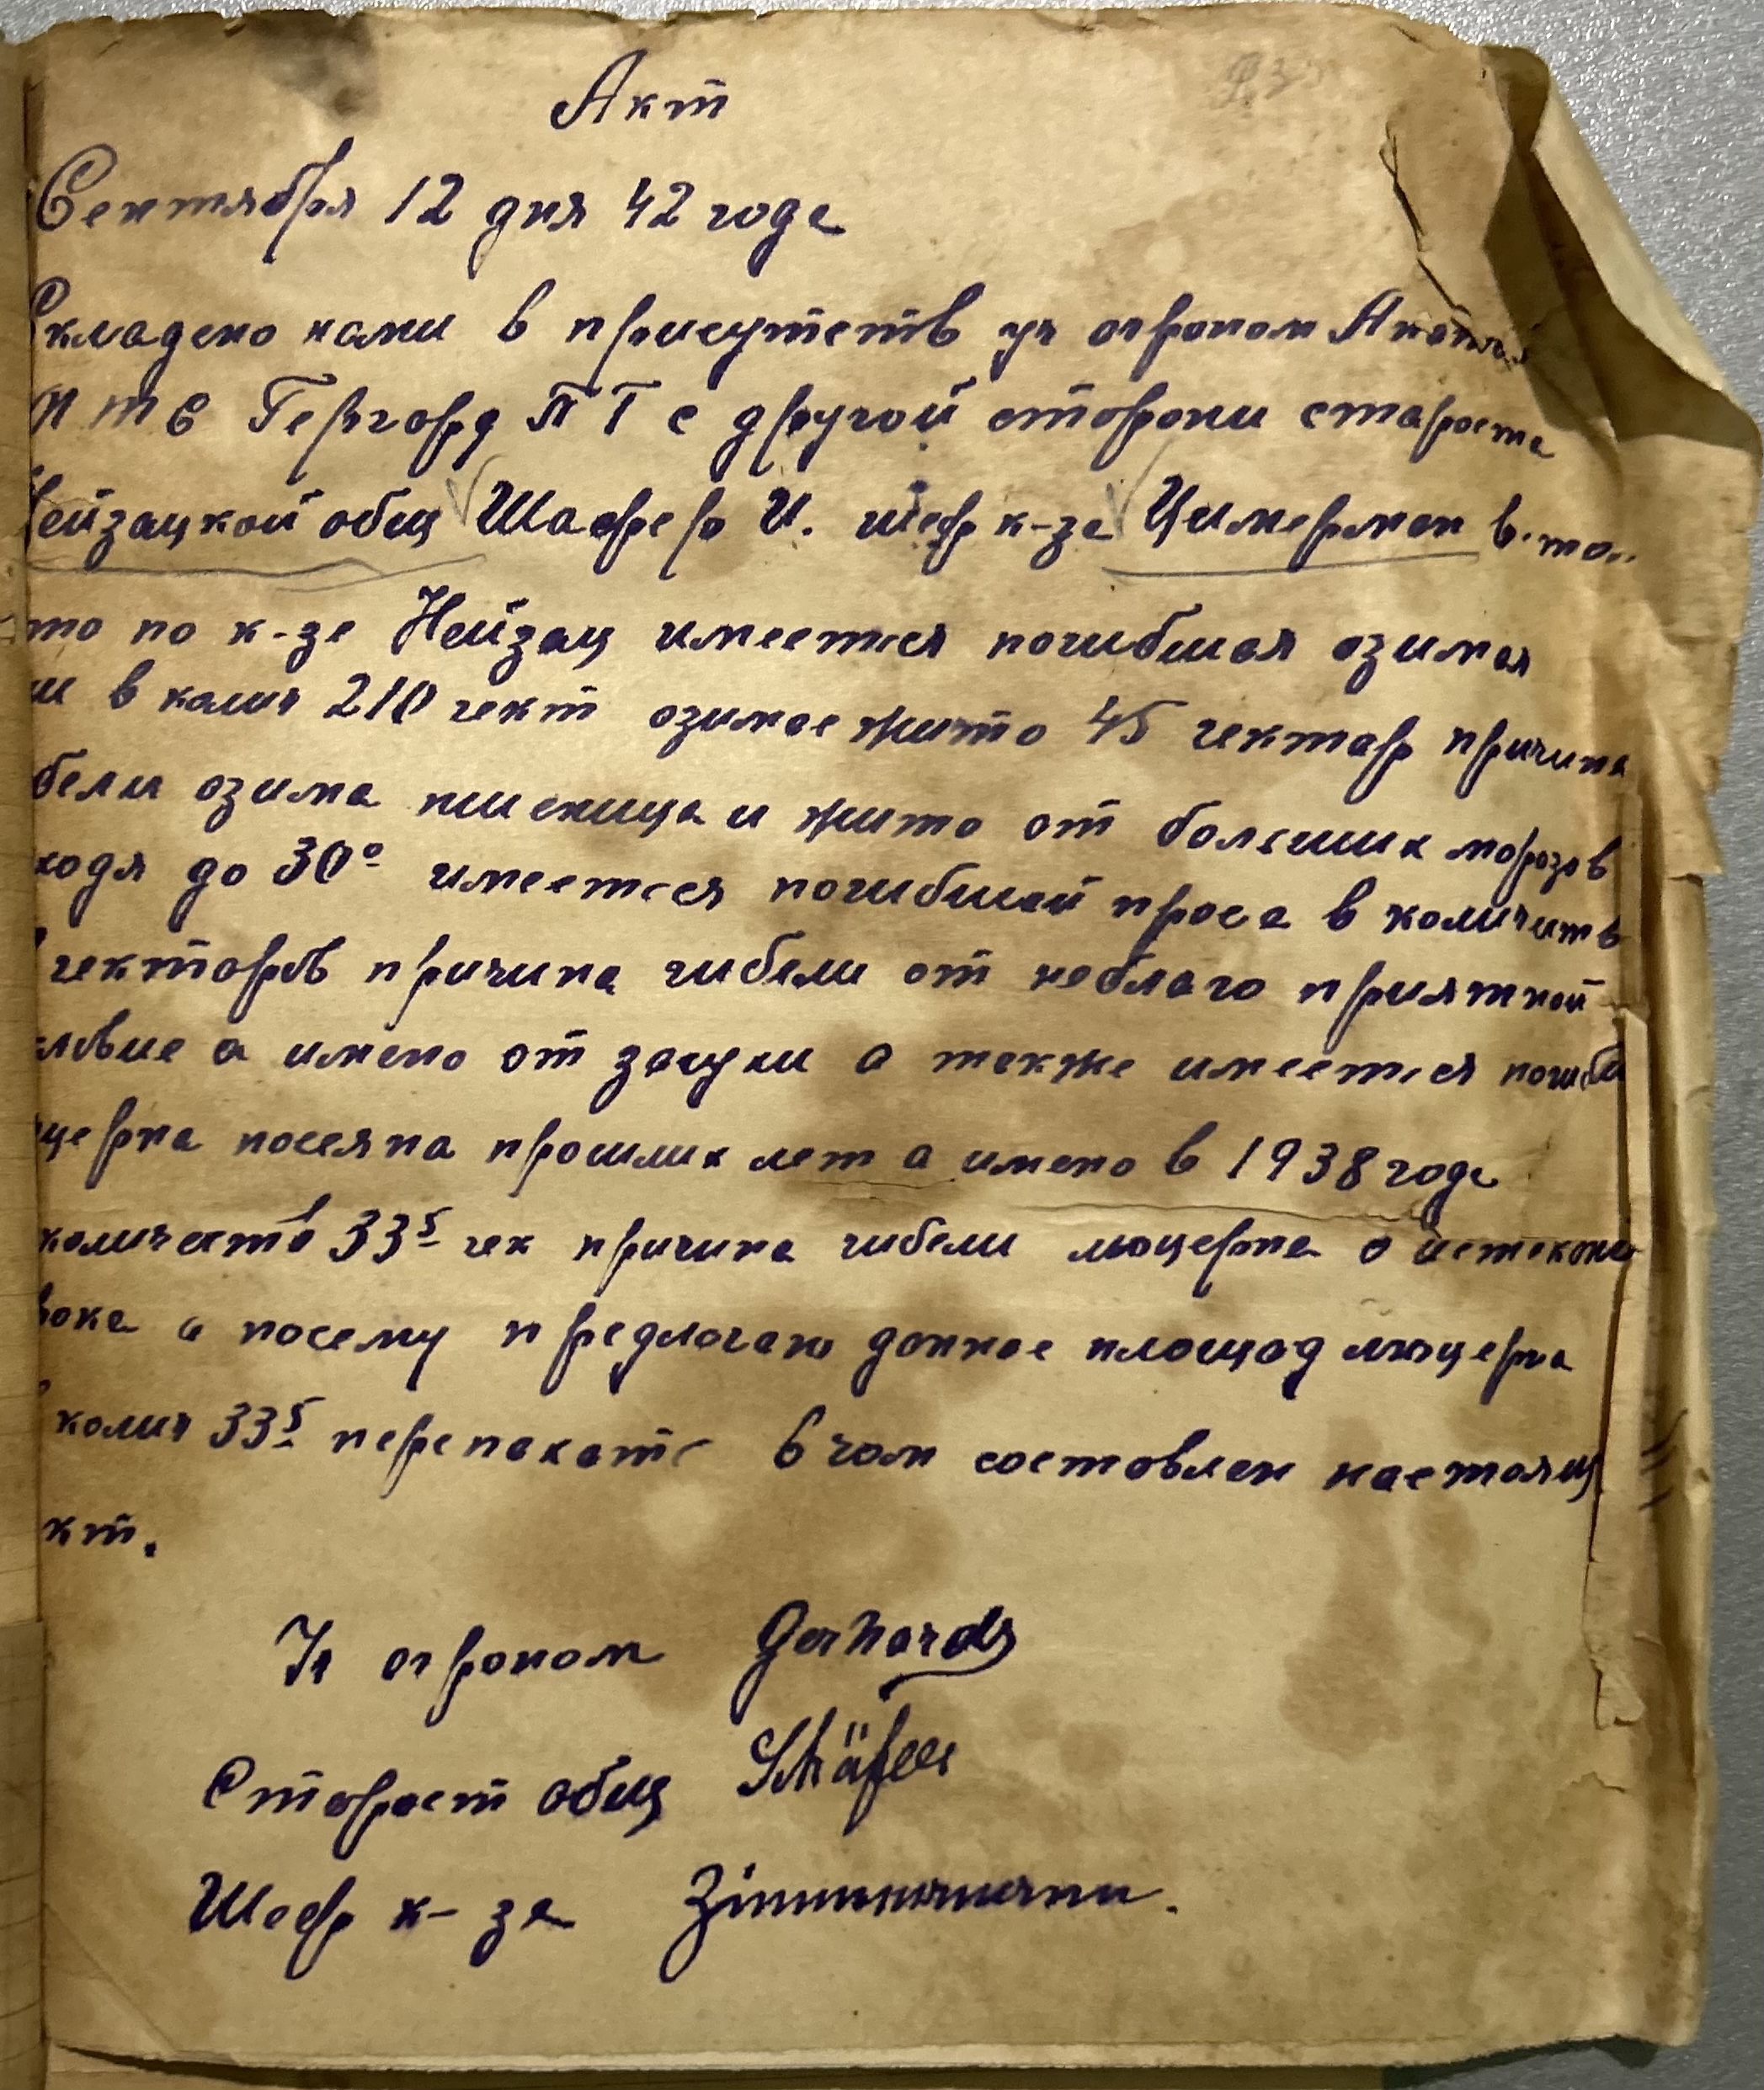 Акт
Сентября 12 дня 42 года
Складено нами в присутств уч агроном
МТС Гергард П Т с другой сторони староста
Нейзацкой общ Шафер И. шеф к-за Цимерман в том
то по к-зе Нейзац имеется погибшая озимая
в колич 210 гект озимое жито 45 гектар причина
бели озима пшеница и жито от больших морозов
ходя до 30° имеется погибшей проса в количеств
гекторов причина гибели от неблаго приятной
ловие а имено от засухи а также имеется погиб
церна посеяна прошлих лет а имено в 1938 годе
количеств 33⁵ гек причина гибели люцерна о истекони
рока а посему предлогаю донное площод люцерна
колич 33⁵ перепахать в чом составлен настоящ
кт.
Уч агроном Gerhards
Старост общ Schäfer
Шеф к-за Zimmermann.